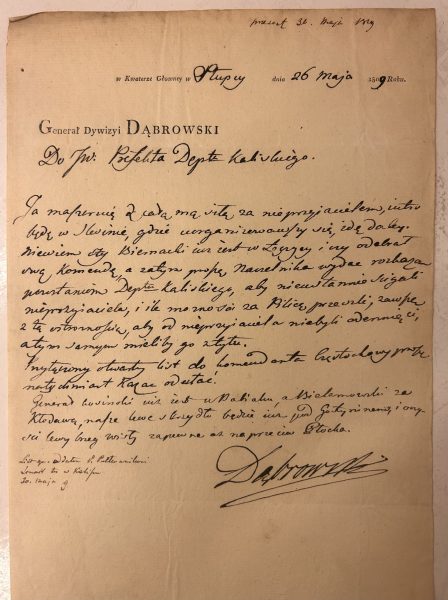 prezent 31. maja 1809
w Kwaterze Głowney w Słupcy dnia 26 Maja 1809 Roku.
Generał Dywizyi DĄBROWSKI
Do JW. Prefekta Depttu Kaliskiego.
Ja maszeruię z całą mą siłą za nieprzyiacielem, iutro
będę w gdzie uorganizowawszy się, idę daley.
Niewiem czy Biernacki iuż iest w Łęczycy i czy odebrał
swą komendę, a zatym proszę Naczelnika wydać rozkazy
powstaniom Depttu Kaliskiego, aby nieustannie ścigali
nieprzyiaciela, i ile możności za Pilicę przeszli, zawsze
z tą ostrożnością, aby od nieprzyiaciela niebyli oderznięci,
a tym samym mieliby go z tyłu.
otwarty list do komendanta Częstochowy proszę
natychmiast kazać odesłać.
Generał Kosinski iuż iest w Babiaku, a Białamowski za
Kłodawą, nasze lewe skrzydło będzie iuż pod Gostyninem, i
lewy brzeg wisły zapewne aż naprzeciw Płocka.
Dąbrowski